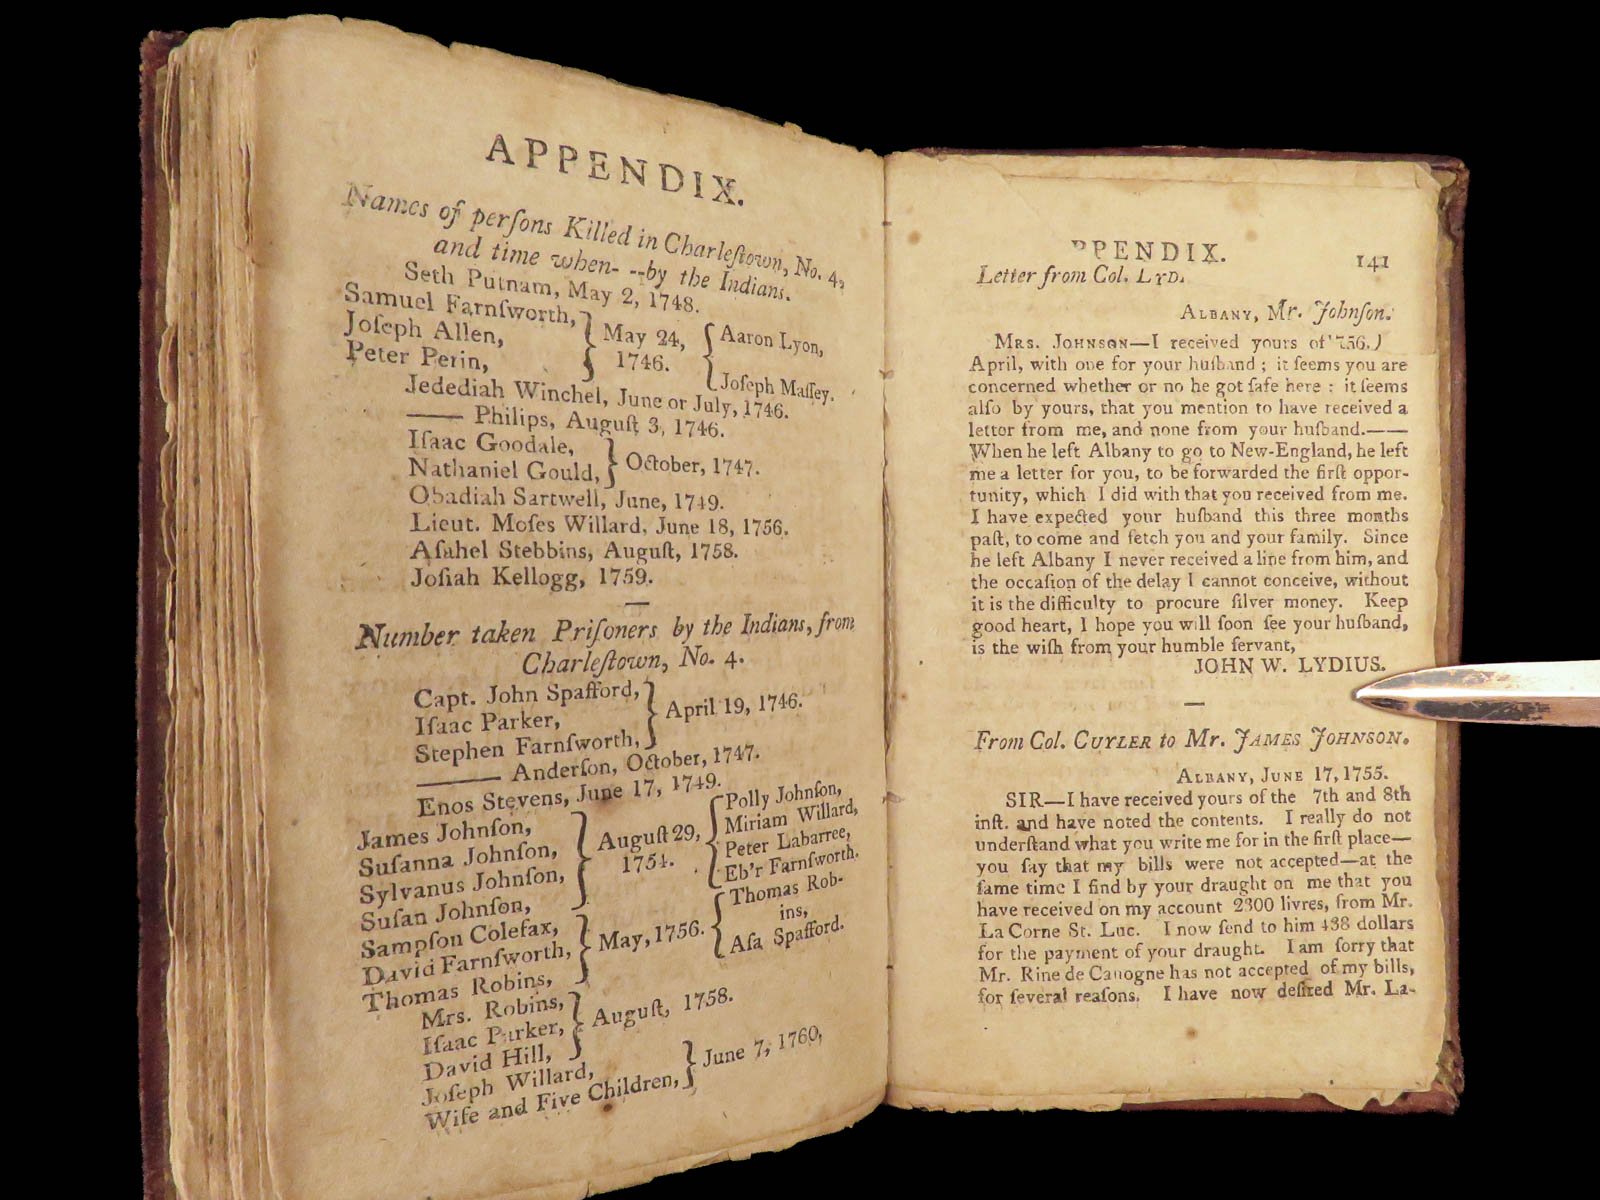 APPENDIX.
Names of perſons Killed in Charleſtown, No. 4,
and time when- --by the Indians.
Seth Putnam, May 2, 1748.
Samuel Farnſworth,
Joſeph Allen,
Peter Perin,
} May 24,
1746.
{ Aaron Lyon,
Joſeph Maſſey.
Jedediah Winchel, June or July, 1746.
—— Philips, Auguſt 3, 1746.
Iſaac Goodale,
Nathaniel Gould,
} October, 1747.
Obadiah Sartwell, June, 1749.
Lieut. Moſes Willard, June 18, 1756.
Aſahel Stebbins, Auguſt, 1758.
Joſiah Kellogg, 1759.
Number taken Priſoners by the Indians, from
Charleſtown, No. 4.
Capt. John Spafford,
Iſaac Parker,
Stephen Farnſworth,
} April 19, 1746.
——— Anderſon, October, 1747.
Enos Stevens, June 17, 1749.
James Johnſon,
Suſanna Johnſon,
Sylvanus Johnſon,
Suſan Johnſon,
} Auguſt 29,
1754.
{ Polly Johnſon,
Miriam Willard,
Peter Labarree,
Eb'r Farnſworth.
Sampſon Colefax,
David Farnſworth,
Thomas Robins,
} May, 1756.
{ Thomas Rob-
ins,
Aſa Spafford.
Mrs. Robins,
Iſaac Parker,
David Hill,
} Auguſt, 1758.
Joſeph Willard,
Wife and Five Children,
} June 7, 1760,
PPENDIX.
141
Letter from Col. LYD.
ALBANY, Mr. Johnſon.
MRS. JOHNSON—I received yours of 756.)
April, with one for your huſband ; it ſeems you are
concerned whether or no he got ſafe here : it ſeems
alſo by yours, that you mention to have received a
letter from me, and none from your huſband.——
When he left Albany to go to New-England, he left
me a letter for you, to be forwarded the firſt oppor-
tunity, which I did with that you received from me.
I have expected your huſband this three months
paſt, to come and fetch you and your family. Since
he left Albany I never received a line from him, and
the occaſion of the delay I cannot conceive, without
it is the difficulty to procure ſilver money. Keep
good heart, I hope you will ſoon ſee your huſband,
is the wiſh from your humble ſervant,
JOHN W. LYDIUS.
From Col. CUYLER to Mr. JAMES JOHNSON.
ALBANY, JUNE 17, 1755.
SIR—I have received yours of the 7th and 8th
inſt. and have noted the contents. I really do not
underſtand what you write me for in the firſt place—
you ſay that my bills were not accepted—at the
ſame time I find by your draught on me that you
have received on my account 2300 livres, from Mr.
La Corne St. Luc. I now ſend to him 438 dollars
for the payment of your draught. I am ſorry that
Mr. Rine de Cauogne has not accepted of my bills,
for ſeveral reaſons. I have now deſired Mr. La-